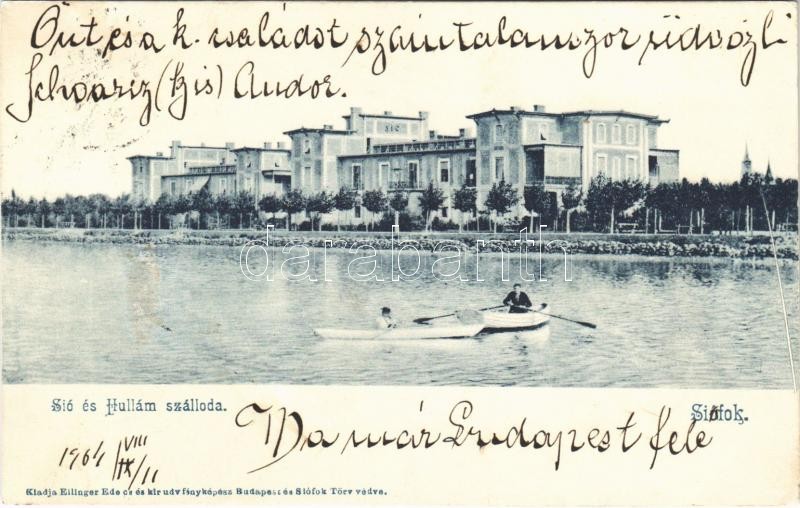 Önt és a k. családot számtalanszor üdvözli
Schwarcz (Kis) Andor.
SIO
darabanth
Sió és Hullám szálloda.
Siófok.
Ma már Budapest felé
1904 VIII/11
IX
Kiadja Ellinger Ede cs és kir udv fényképész Budapest és Siófok Törv védve.